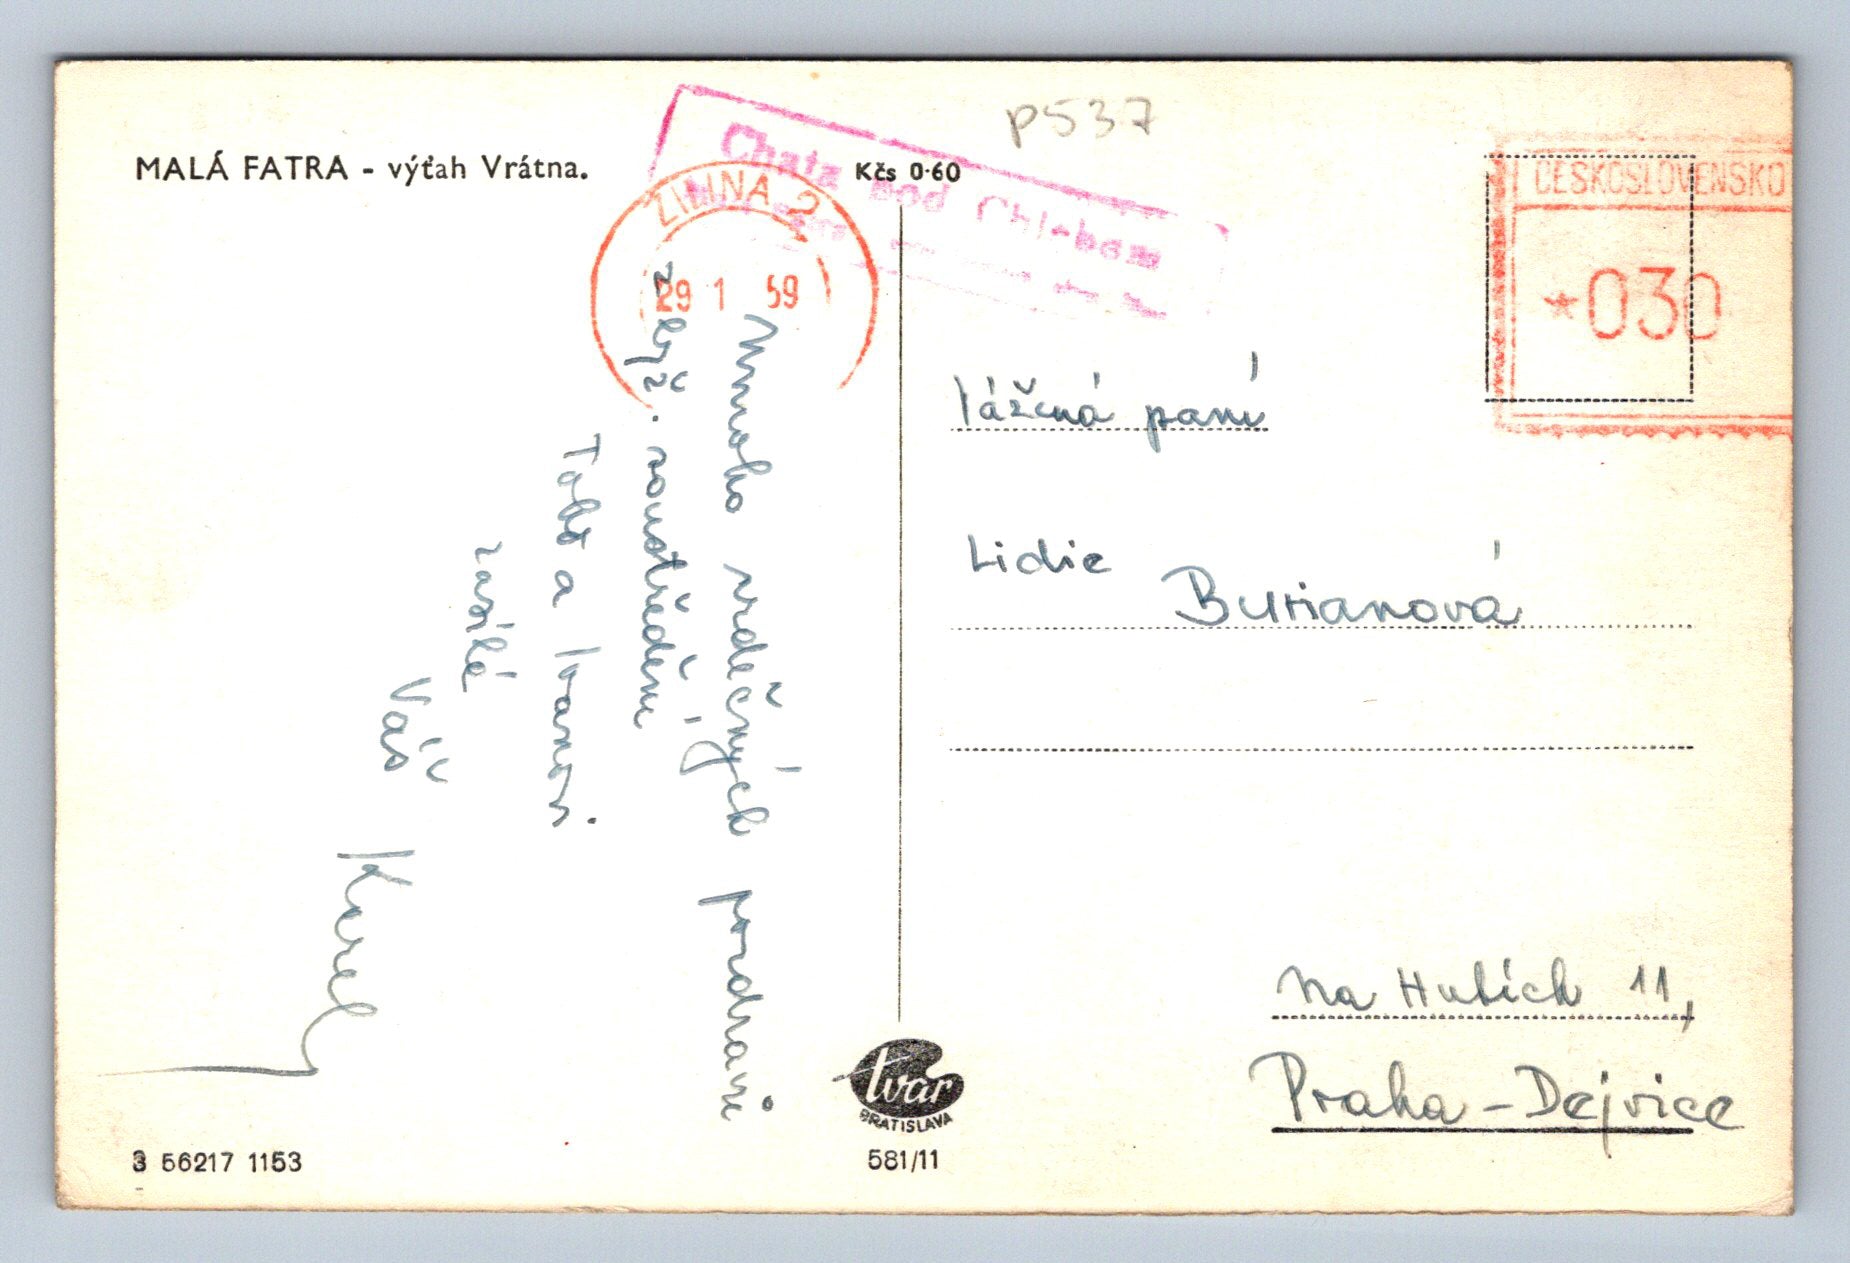 MALÁ FATRA - výťah Vrátna.
Kčs 0·60
P537
Chata pod Chlebom
ŽILINA 2
29 1 59
ČESKOSLOVENSKO
*030
Mnoho srdečných pozdravů
z lyž. soustředění
Tobě a Ivanovi
zasílá
Váš
Karel
Vážená paní
Lidie
Burianová
Na Hutích 11,
Praha - Dejvice
tvar
BRATISLAVA
3 56217 1153
581/11